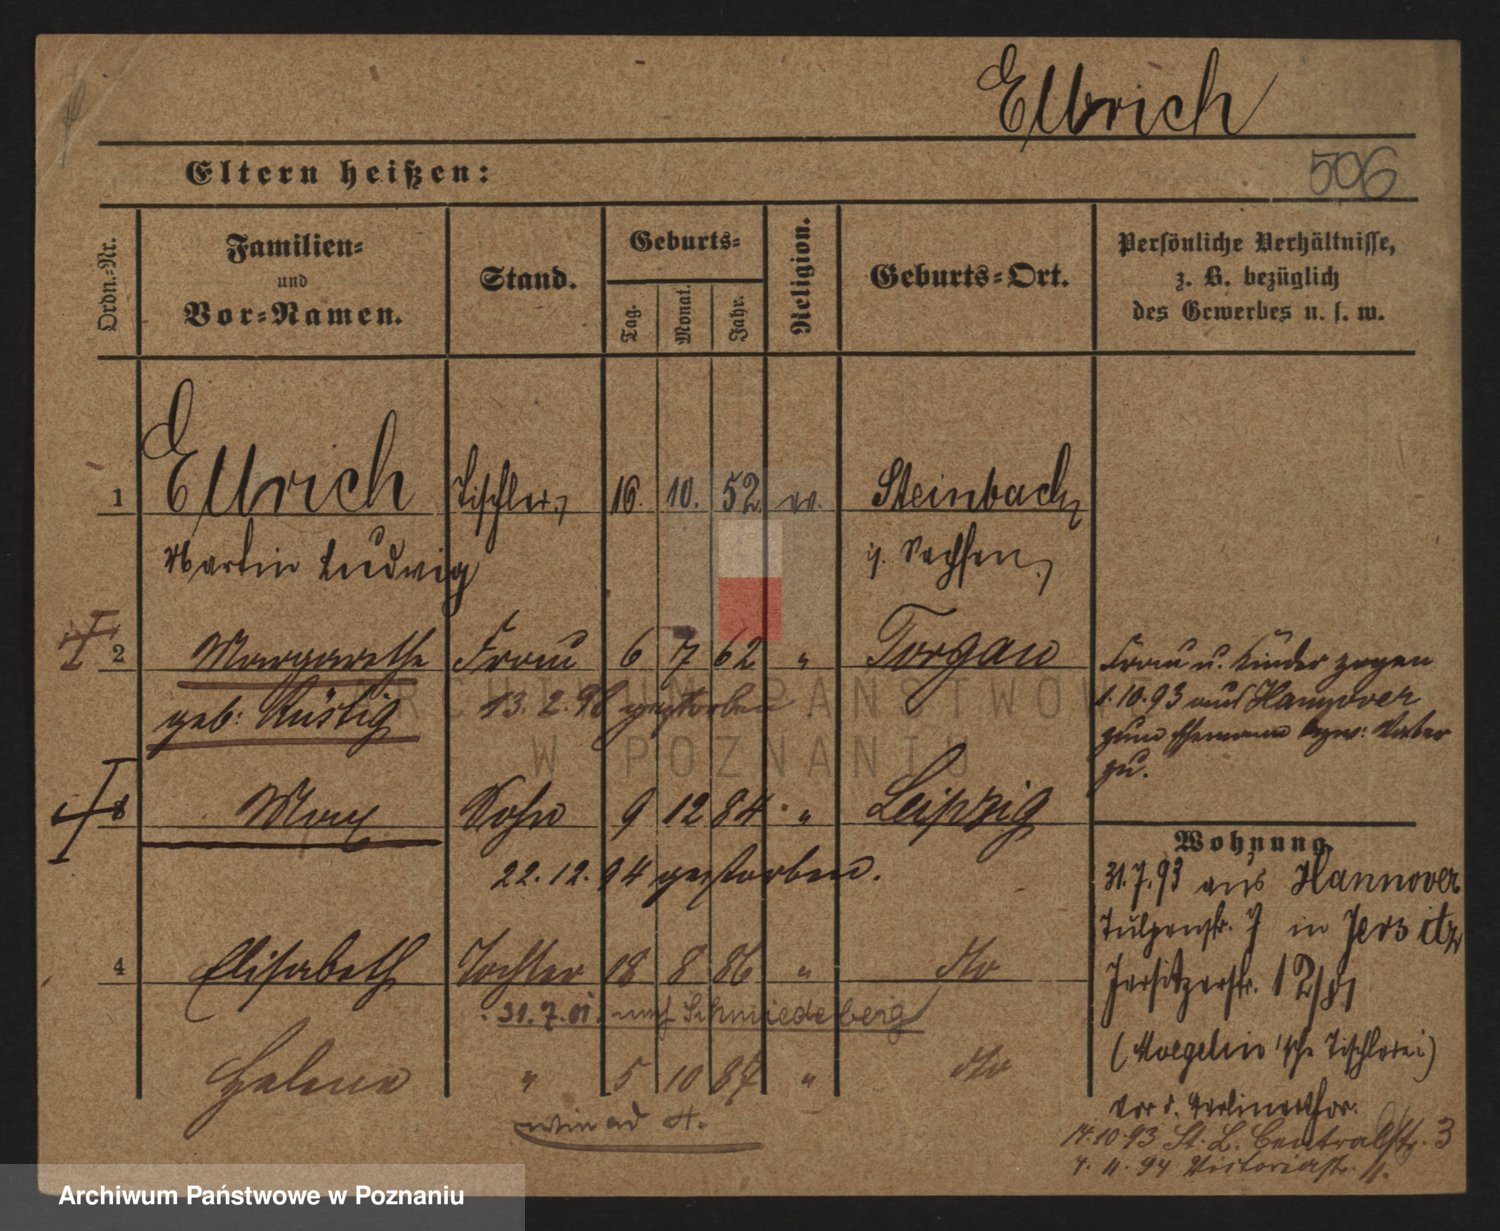 Ellrich
Eltern heißen:
506
Ordn.-Nr.
Familien-
und
Vor-Namen.
Stand.
Geburts-
Tag.
Monat.
Jahr.
Religion.
Geburts-Ort.
Persönliche Verhältnisse,
z. B. bezüglich
des Gewerbes u. s. w.
1 Ellrich Tischler 16. 10. 52. ev. Steinbach
Martin Ludwig i. Sachsen
2 Margarethe Frau 6 7 62 " Torgau
geb: Rüstig 13. 2. 98 gestorben
Frau u. Kinder zogen
1.10.93 aus Hannover
zum Ehemann bzw: Vater
zu.
Max Sohn 9 12 84 " Leipzig
22. 12. 94 gestorben.
4 Elisabeth Tochter 18 8 86 " dto
31.7.01. nach Schmiedeberg
Helene " 5 10 87 " dto
wie ad 4.
Wohnung.
31.7.93 aus Hannover
Tulpenstr. 7 in Jersitz
Jersitzerstr. 12
(Moegelin'sche Tischlerei)
vor d. Berlinerthor.
17.10.93 St. L. Centralstr. 3
4. 11. 94 Victoriastr. 11.
ARCHIWUM PAŃSTWOWE
W POZNANIU
Archiwum Państwowe w Poznaniu